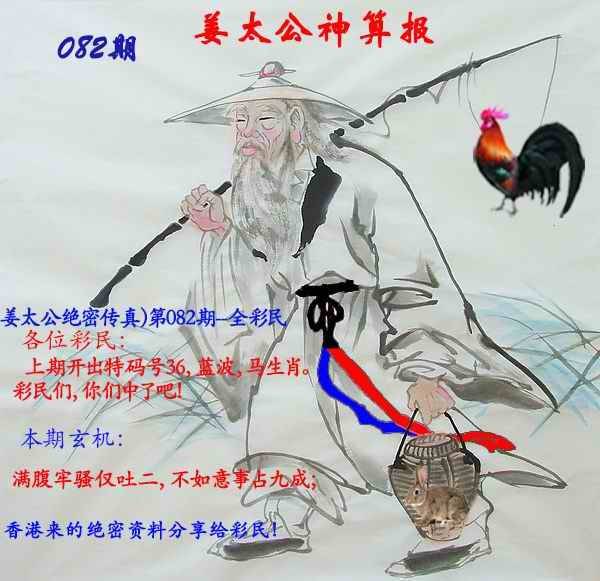 姜太公神算报
082期
姜太公绝密传真)第082期--全彩民
各位彩民:
上期开出特码号36,蓝波,马生肖。
彩民们,你们中了吧!
本期玄机:
满腹牢骚仅吐二,不如意事占九成;
香港来的绝密资料分享给彩民!